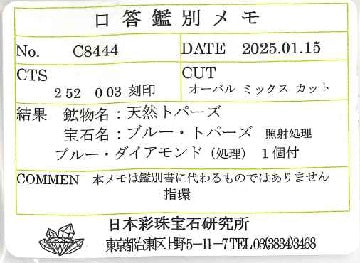 口答鑑別メモ
No. C8444 DATE 2025.01.15
CTS CUT
2 52 0 03 刻印 オーバル ミックス カット
結果 鉱物名：天然トパーズ
宝石名：ブルー・トパーズ 照射処理
ブルー・ダイアモンド（処理）1個付
COMMEN 本メモは鑑別書に代わるものではありません
指環
日本彩珠宝石研究所
東京都台東区上野5-11-7TEL03(3834)3468